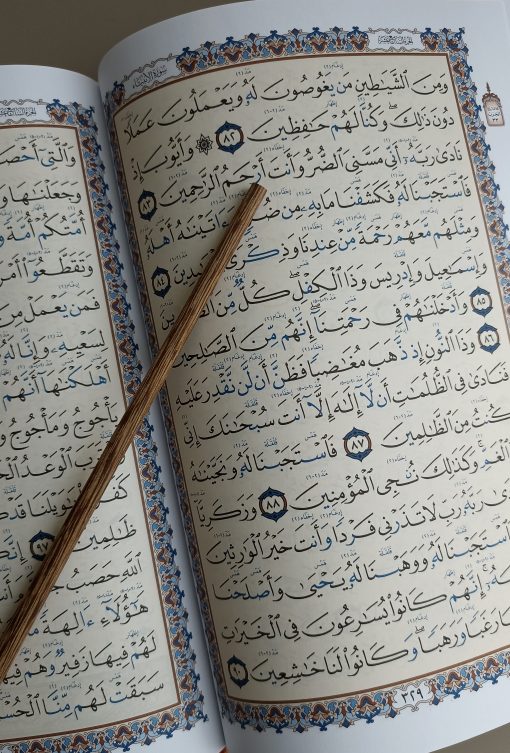 الجزء السابع عشر
سورة الأنبياء
وَمِنَ ٱلشَّيَٰطِينِ مَن يَغُوصُونَ لَهُۥ وَيَعْمَلُونَ عَمَلًا
دُونَ ذَٰلِكَ ۖ وَكُنَّا لَهُمْ حَٰفِظِينَ ٨٢ ۞ وَأَيُّوبَ إِذْ
نَادَىٰ رَبَّهُۥٓ أَنِّى مَسَّنِىَ ٱلضُّرُّ وَأَنتَ أَرْحَمُ ٱلرَّٰحِمِينَ ٨٣
فَٱسْتَجَبْنَا لَهُۥ فَكَشَفْنَا مَا بِهِۦ مِن ءَاتَيْنَٰهُ أَهْلَهُۥ
وَمِثْلَهُم مَّعَهُمْ رَحْمَةً مِّنْ عِندِنَا وَذِكْرَىٰ ٨٤
وَإِسْمَٰعِيلَ وَإِدْرِيسَ وَذَا ٱلْكِفْلِ ۖ كُلٌّ مِّنَ
٨٥ وَأَدْخَلْنَٰهُمْ فِى رَحْمَتِنَآ ۖ إِنَّهُم مِّنَ ٱلصَّٰلِحِينَ ٨٦
وَذَا ٱلنُّونِ إِذ ذَّهَبَ مُغَٰضِبًا فَظَنَّ أَن لَّن نَّقْدِرَ عَلَيْهِ
فَنَادَىٰ فِى ٱلظُّلُمَٰتِ أَن لَّآ إِلَٰهَ إِلَّآ أَنتَ سُبْحَٰنَكَ إِنِّى
كُنتُ مِنَ ٱلظَّٰلِمِينَ ٨٧ فَٱسْتَجَبْنَا لَهُۥ وَنَجَّيْنَٰهُ
ٱلْغَمِّ ۚ وَكَذَٰلِكَ نُۨجِى ٱلْمُؤْمِنِينَ ٨٨ وَزَكَرِيَّآ
رَبَّهُۥ رَبِّ لَا تَذَرْنِى فَرْدًا وَأَنتَ خَيْرُ ٱلْوَٰرِثِينَ
فَٱسْتَجَبْنَا لَهُۥ وَوَهَبْنَا لَهُۥ يَحْيَىٰ وَأَصْلَحْنَا
إِنَّهُمْ كَانُوا۟ يُسَٰرِعُونَ فِى ٱلْخَيْرَٰتِ
رَغَبًا وَرَهَبًا ۖ وَكَانُوا۟ لَنَا خَٰشِعِينَ ٩٠
٣٢٩
وَٱلَّتِىٓ
وَجَعَلْنَٰهَا
أُمَّتُكُمْ أُمَّةً
وَتَقَطَّعُوٓا۟
فَمَن يَعْمَلْ مِنَ
لِسَعْيِهِۦ وَإِنَّا لَهُۥ
أَهْلَكْنَٰهَآ أَنَّهُمْ
يَأْجُوجُ وَمَأْجُوجُ
ٱلْوَعْدُ
يَٰوَيْلَنَا قَدْ
ظَٰلِمِينَ ٩٧
ٱللَّهِ حَصَبُ
هَٰٓؤُلَآءِ ءَالِهَةً
لَهُمْ فِيهَا زَفِيرٌ وَهُمْ فِيهَا
سَبَقَتْ لَهُم مِّنَّا